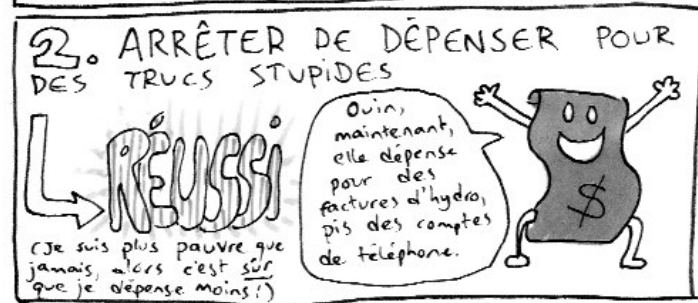 2. ARRÊTER DE DÉPENSER POUR
DES TRUCS STUPIDES
RÉUSSI
(Je suis plus pauvre que
jamais, alors c'est sûr
que je dépense moins!)
Ouin,
maintenant,
elle dépense
pour des
factures d'hydro,
pis des comptes
de téléphone.
$